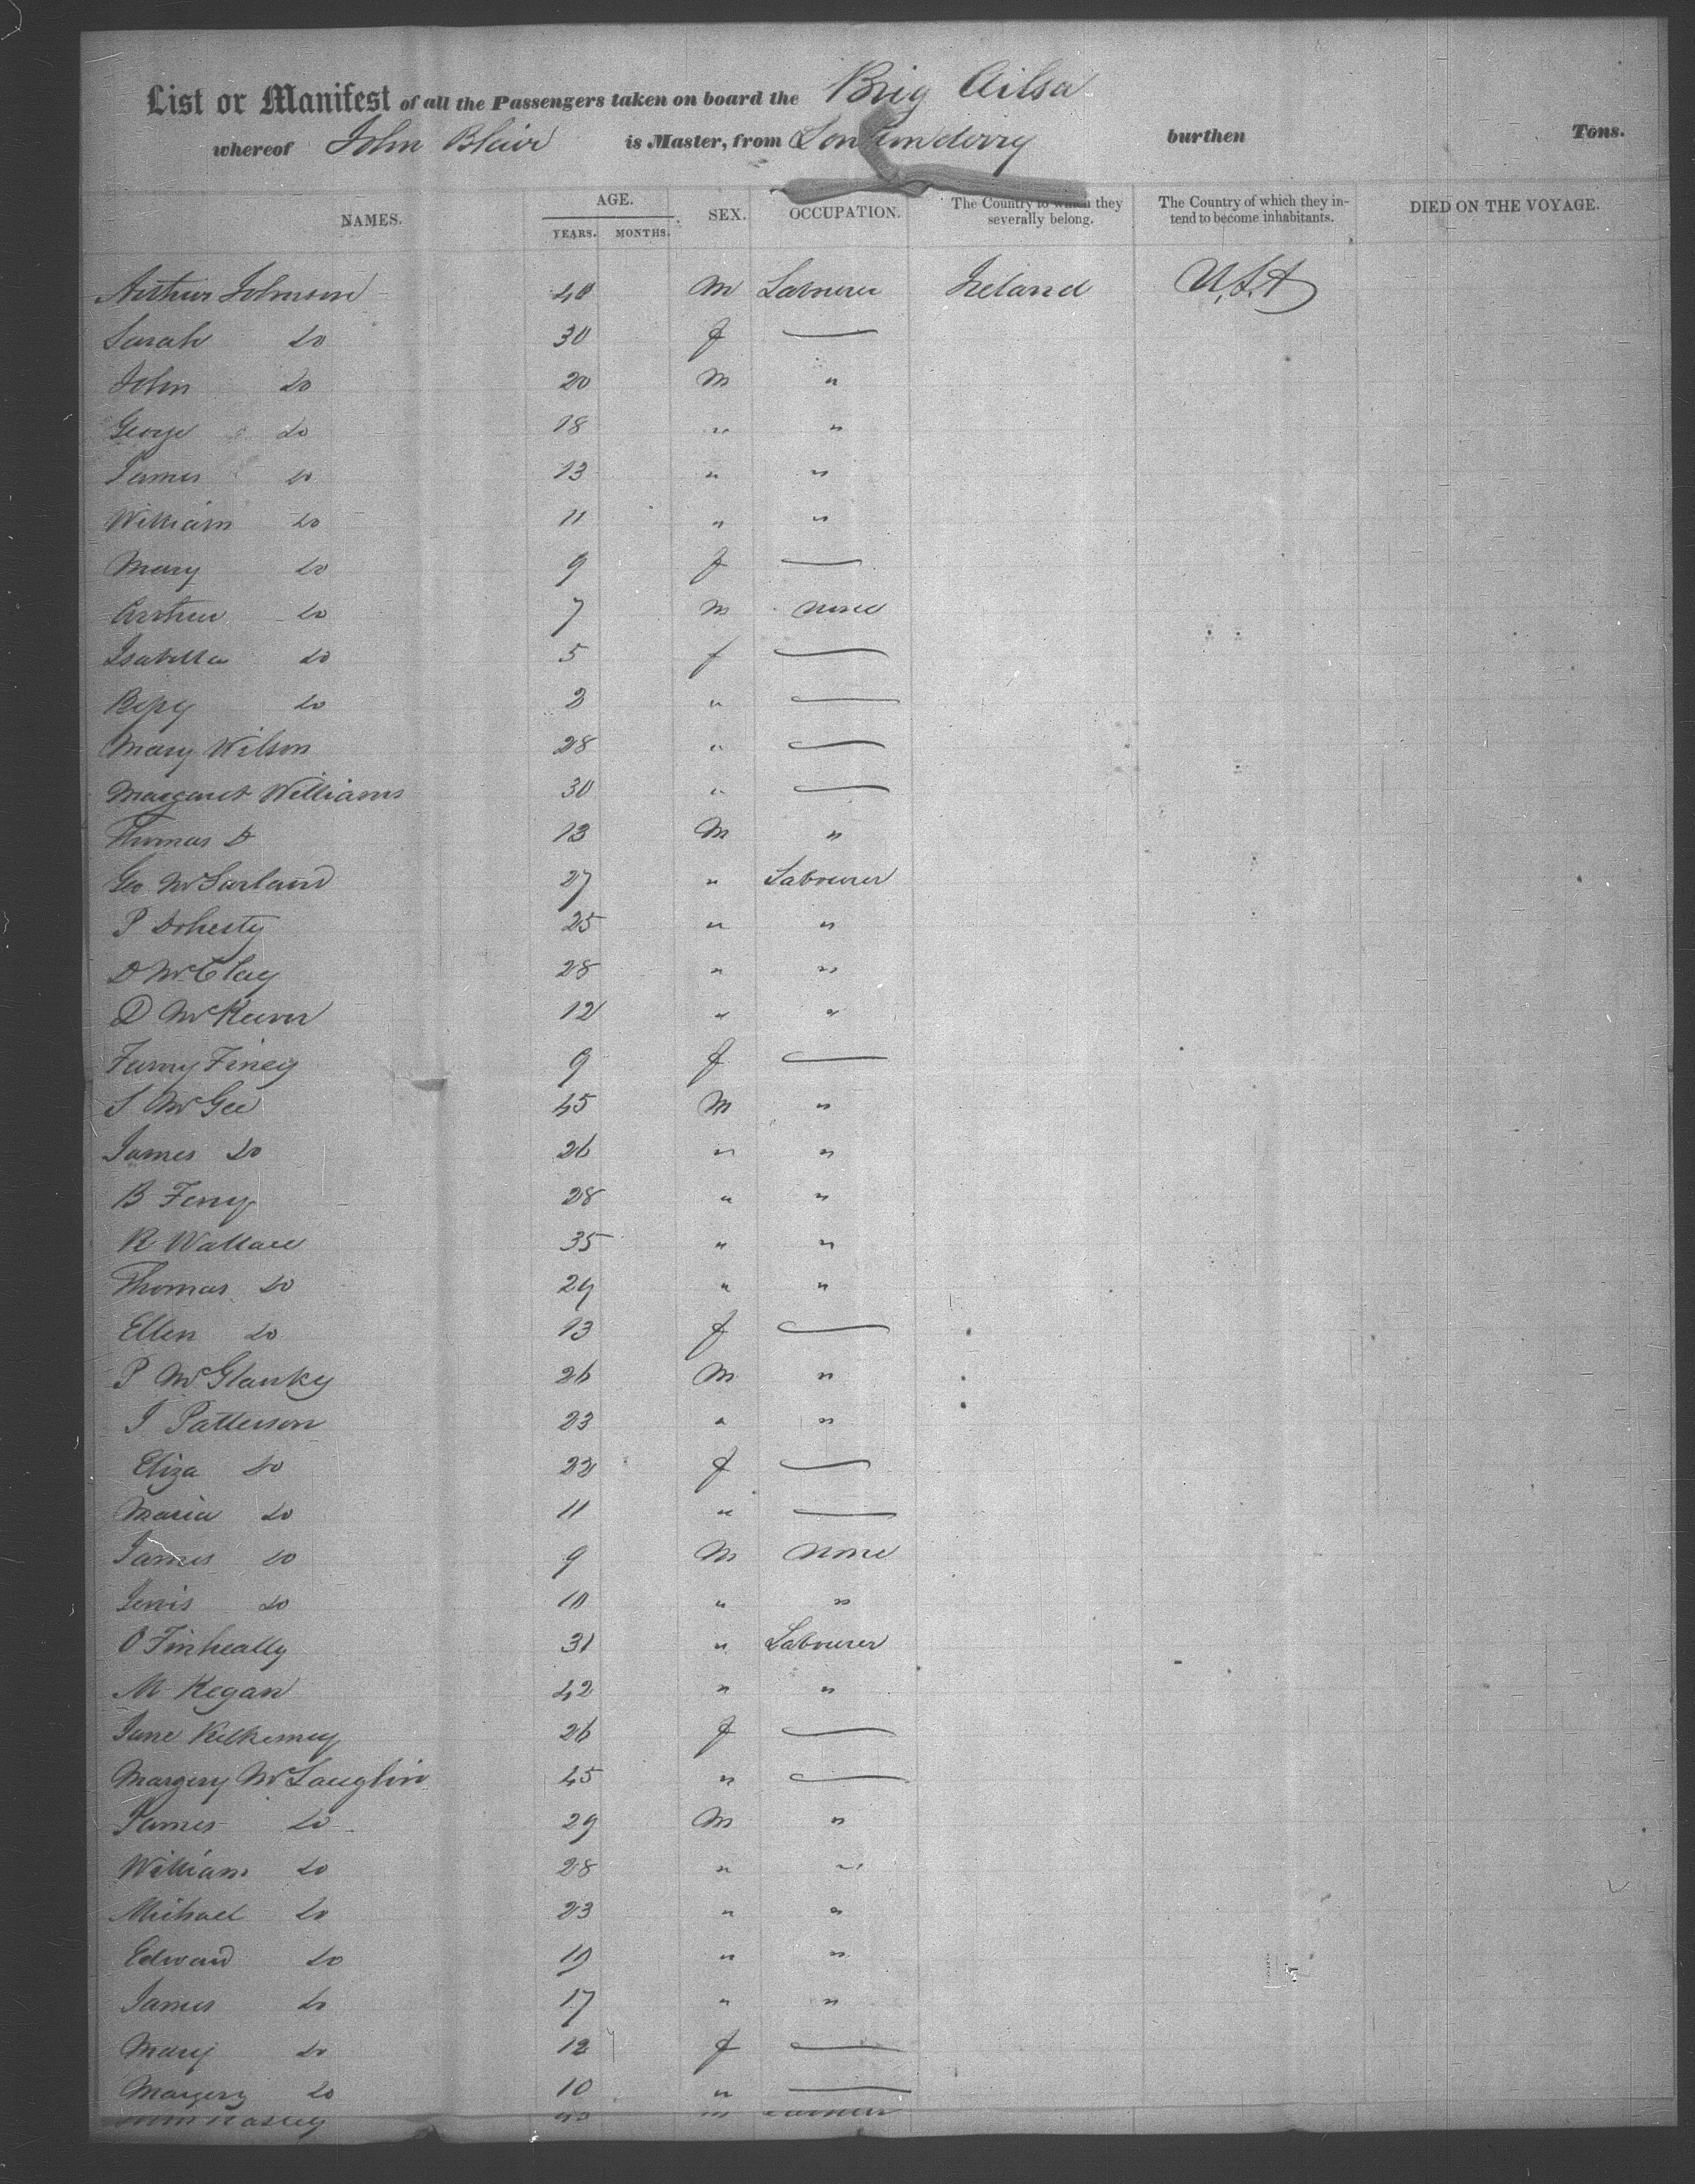 List or Manifest of all the Passengers taken on board the Brig Ailsa
whereof John Blair is Master, from Londonderry burthen Tons.
NAMES. AGE. YEARS. MONTHS. SEX. OCCUPATION. The Country to which they severally belong. The Country of which they intend to become inhabitants. DIED ON THE VOYAGE.
Arthur Johnson 40 M Labourer Ireland U.S.A
Sarah Do 30 f —
John Do 20 M "
George Do 18 " "
James Do 13 " "
William Do 11 " "
Mary Do 9 f —
Arthur Do 7 M none
Isabella Do 5 f —
Bessy Do 2 " —
Mary Wilson 28 " —
Margaret Williams 30 " —
Thomas D 13 M "
Geo McFarland 27 " Labourer
P Doherty 25 " "
D McClay 28 " "
D McKeever 12 " "
Fanny Finey 9 f —
S McGee 45 M "
James Do 26 " "
B Ferry 28 " "
R Wallace 35 " "
Thomas Do 24 " "
Ellen Do 13 f —
P McGlanky 26 M "
J Patterson 23 " "
Eliza Do 22 f —
Maria Do 11 " —
James Do 9 M none
Do 10 " "
O Finheally 31 " Labourer
M Kegan 42 " "
Jane 26 f —
Margery McLauglin 45 " —
James Do 29 M "
William Do 28 " "
Michael Do 23 " "
Edward Do 19 " "
James Do 17 " "
Mary Do 12 f —
Margery Do 10 " —